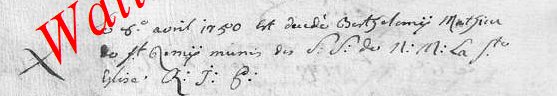 Wa
6º avril 1750 Est decedé Berthelemij Mathieu
de St Remij munis des S: S: de N: M: La Ste
Eglise. R: J: P: